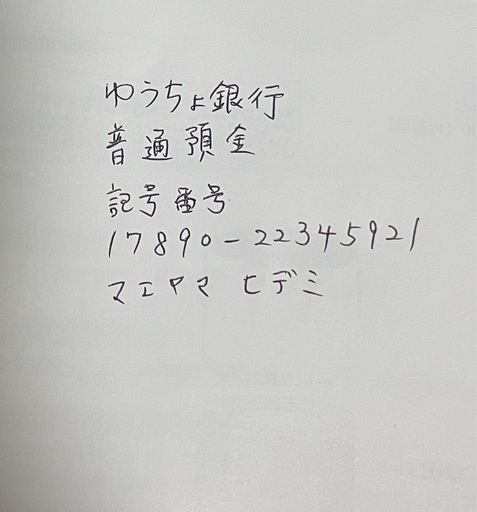 ゆうちょ銀行
普通預金
記号番号
17890-22345921
マエヤマ ヒデミ